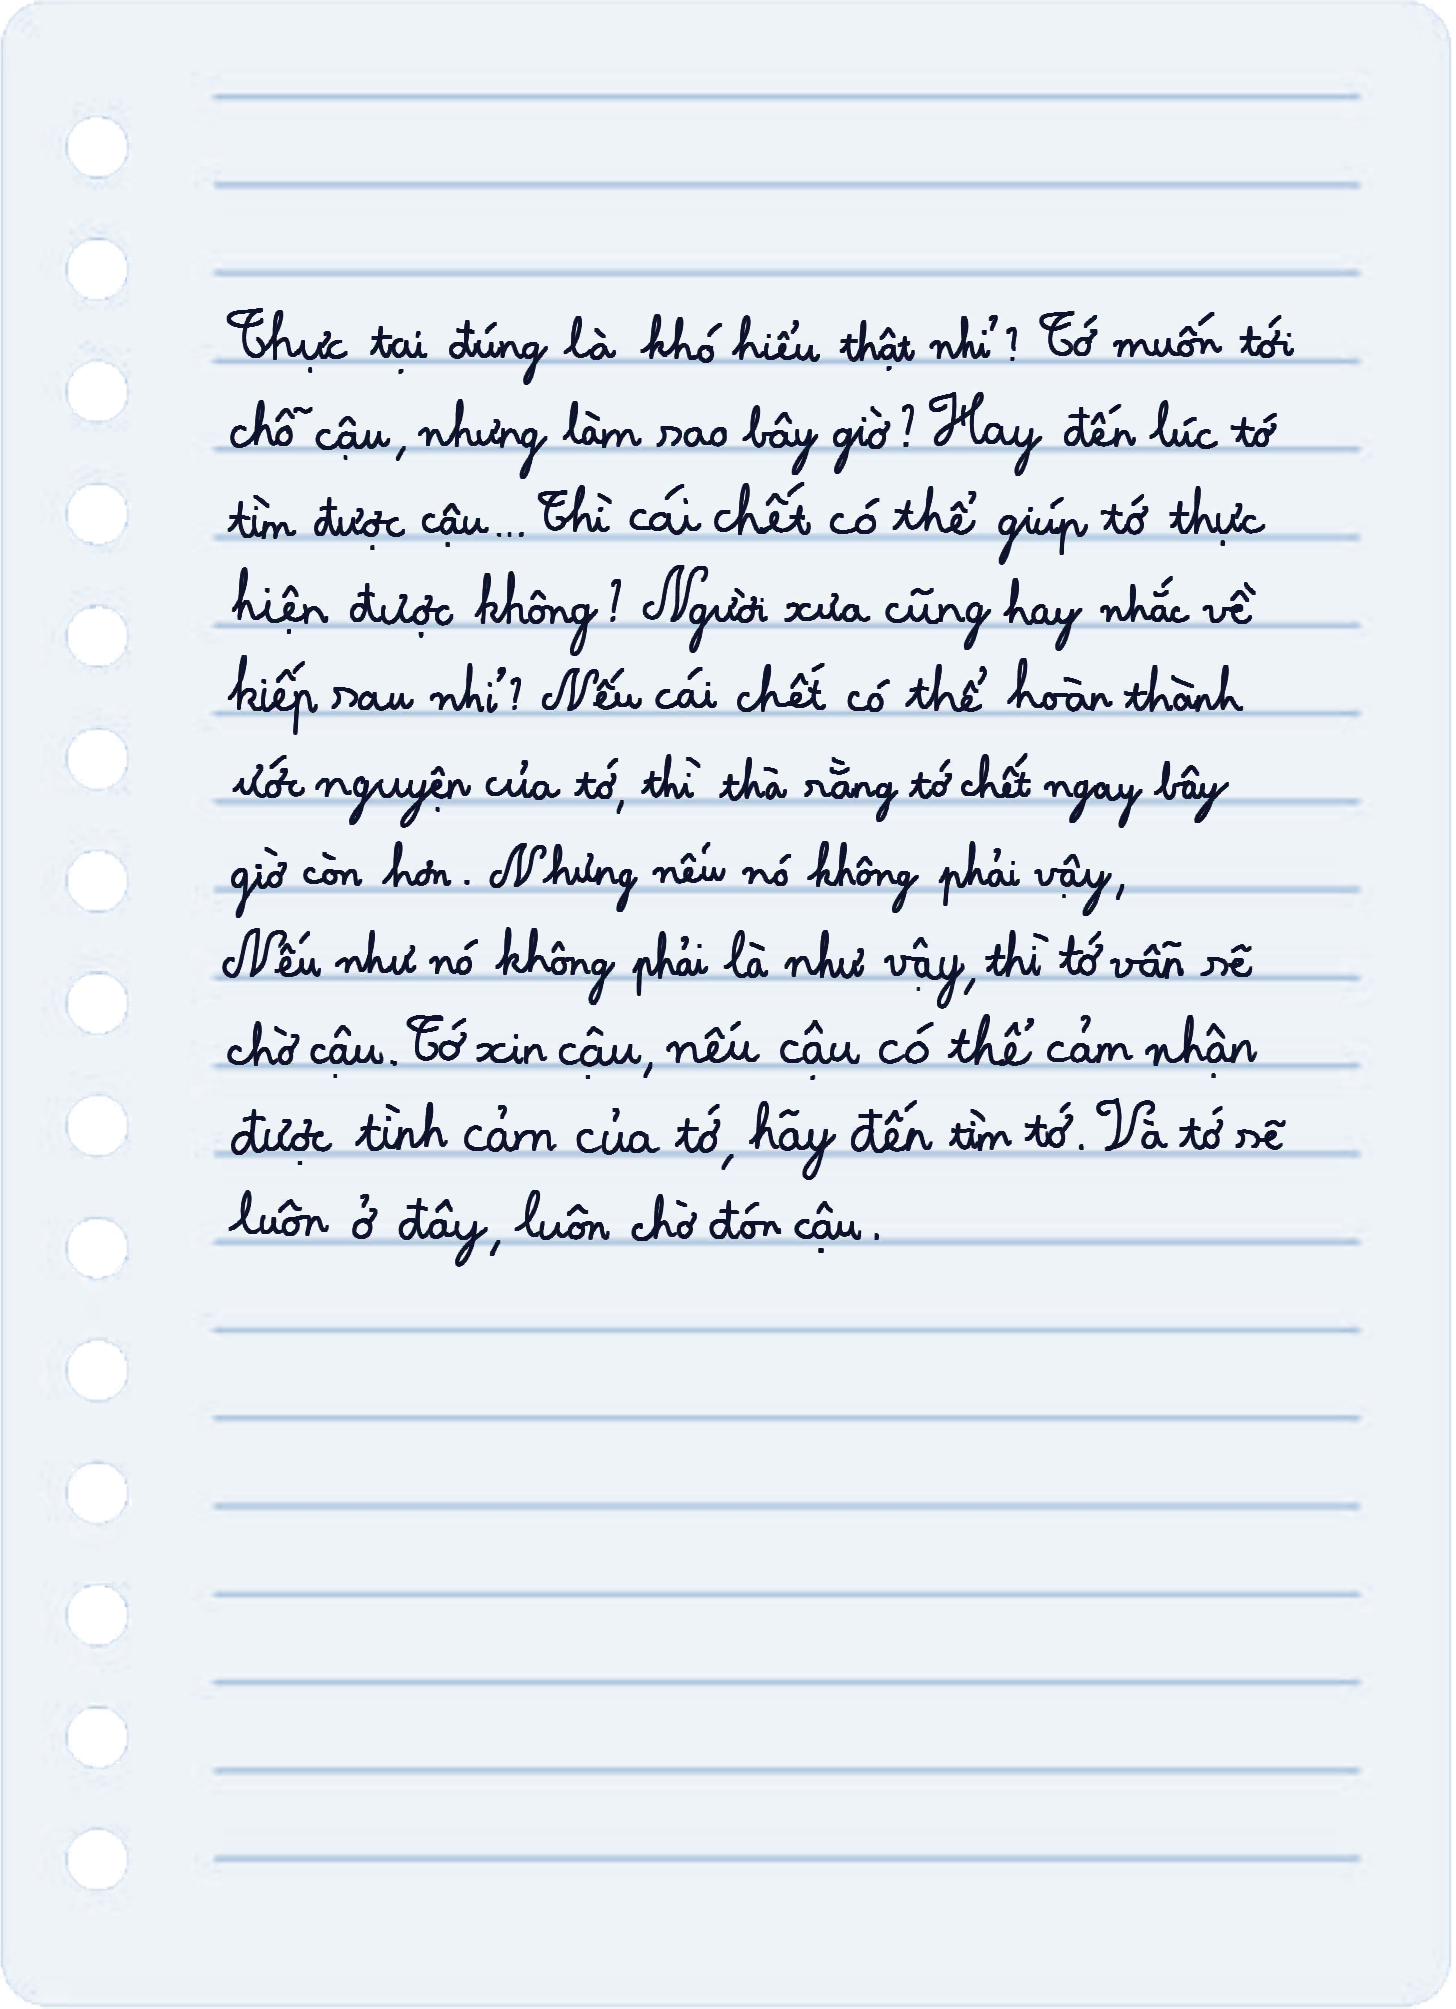 Thực tại đúng là khó hiểu thật nhỉ? Tớ muốn tới
chỗ cậu, nhưng làm sao bây giờ? Hay đến lúc tớ
tìm được cậu... Thì cái chết có thể giúp tớ thực
hiện được không? Người xưa cũng hay nhắc về
kiếp sau nhỉ? Nếu cái chết có thể hoàn thành
ước nguyện của tớ, thì thà rằng tớ chết ngay bây
giờ còn hơn. Nhưng nếu nó không phải vậy,
Nếu như nó không phải là như vậy, thì tớ vẫn sẽ
chờ cậu. Tớ xin cậu, nếu cậu có thể cảm nhận
được tình cảm của tớ, hãy đến tìm tớ. Và tớ sẽ
luôn ở đây, luôn chờ đón cậu.